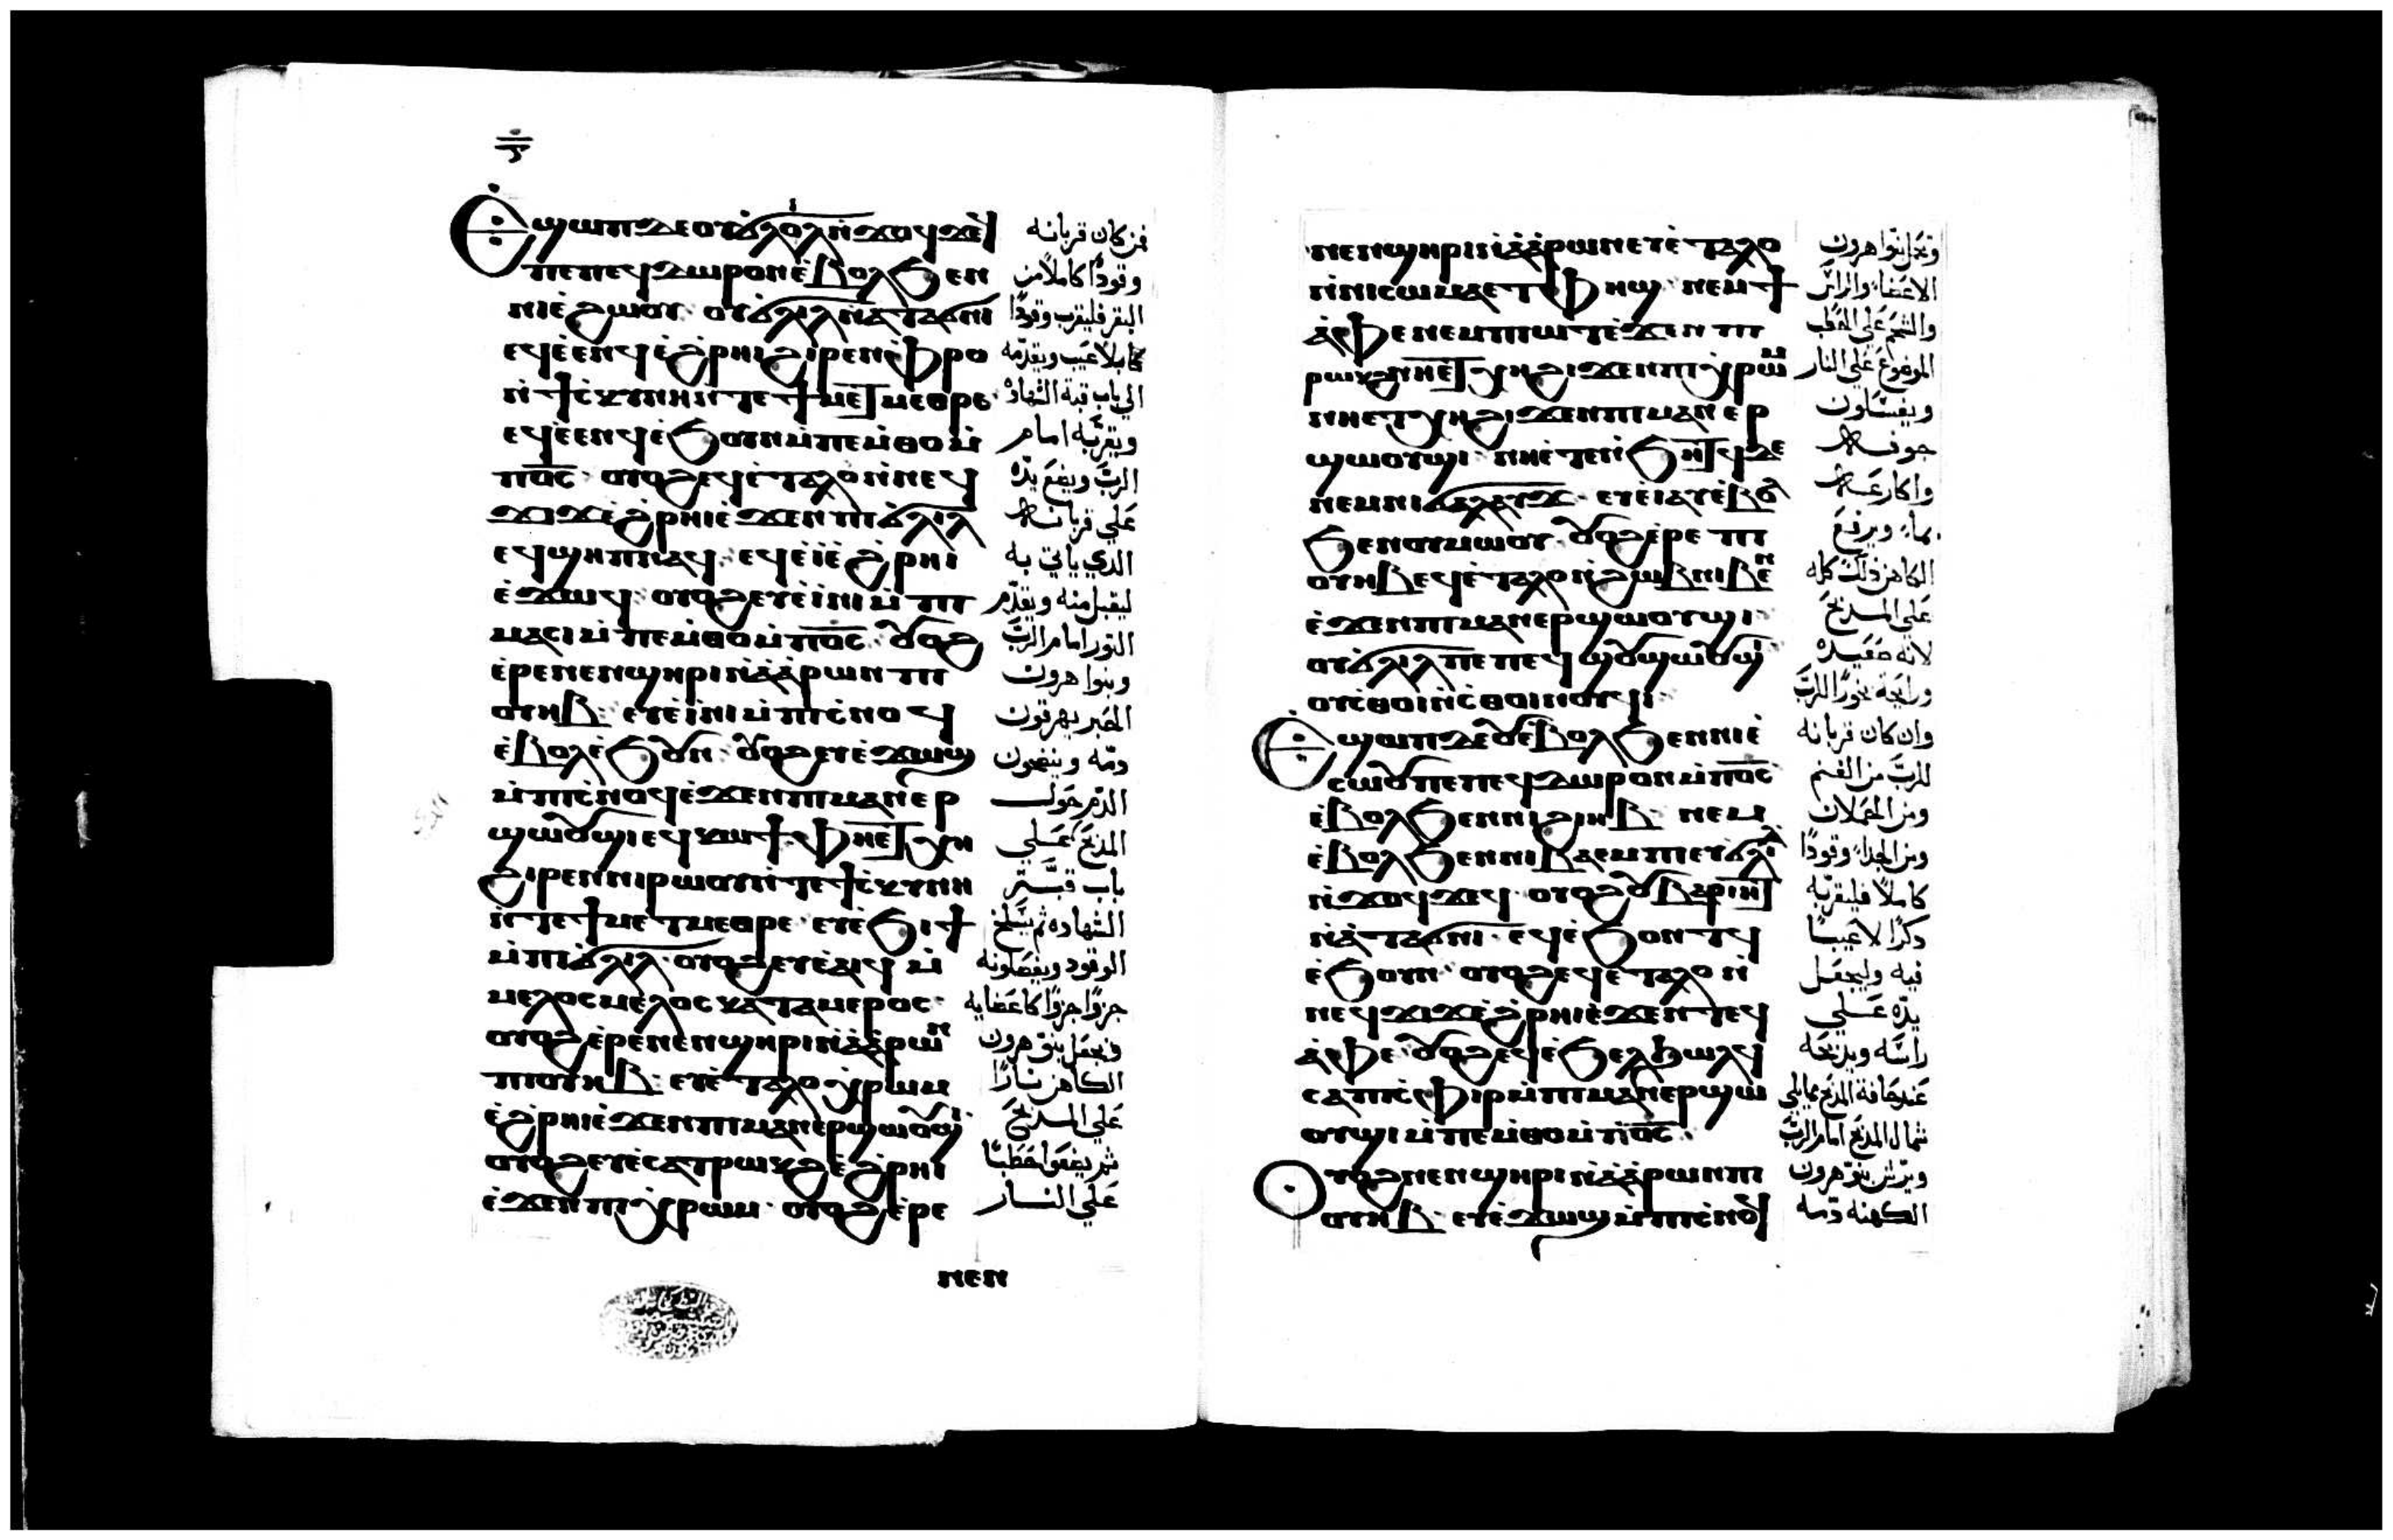 Ⲉϣⲱⲡ ⲇⲉ ⲟⲩϭⲗⲟⲗ ⲛ̀ϫⲟϥϫⲉϥ
ⲡⲉ ⲡⲉϥⲇⲱⲣⲟⲛ ⲉ̀ⲃⲟⲗ ϧⲉⲛ
ⲛⲓⲉ̀ϩⲱⲟⲩ ⲟⲩϭⲗⲓⲗ ⲛ̀ⲁⲧⲁϭⲛⲓ
ⲉϥⲉ̀ⲉⲛϥ ⲉ̀ϩⲣⲏⲓ ϩⲓⲣⲉⲛ ⲫⲣⲟ
ⲛ̀ϯⲥ̀ⲕⲩⲛⲏ ⲛ̀ⲧⲉ ϯⲙⲉⲧⲙⲉⲑⲣⲉ
ⲉϥⲉ̀ⲉⲛϥ ⲉ̀ϧⲟⲩⲛ ⲙ̀ⲡⲉⲙ̀ⲑⲟ ⲙ̀
ⲡⲟ̅ⲥ̅ ⲟⲩⲟϩ ⲉϥⲉ̀ⲧⲁⲗⲟ ⲛ̀ⲛⲉϥ
ϫⲓϫ ⲉ̀ϩⲣⲏⲓ ⲉ̀ϫⲉⲛ ⲡⲓϭⲗⲓⲗ
ⲉϥϣⲏⲡ ⲛⲁϥ ⲉϥⲉ̀ⲓ̀ ⲉ̀ϩⲣⲏⲓ
ⲉ̀ϫⲱϥ ⲟⲩⲟϩ ⲉⲩⲉ̀ⲓ̀ⲛⲓ ⲙ̀ⲡⲓ
ⲙⲁⲥⲓ ⲙ̀ⲡⲉⲙ̀ⲑⲟ ⲙ̀ⲡⲟ̅ⲥ̅ ⲟⲩⲟϩ
ⲉ̀ⲣⲉ ⲛⲉⲛϣⲏⲣⲓ ⲛ̀ⲁ̀ⲁ̀ⲣⲱⲛ ⲡⲓ
ⲟⲩⲏⲃ ⲉⲩⲉ̀ⲓ̀ⲛⲓ ⲙ̀ⲡⲓⲥ̀ⲛⲟϥ
ⲉ̀ⲃⲟⲗ ⲉ̀ϧⲟⲩⲛ ⲟⲩⲟϩ ⲉⲩⲉ̀ϫⲱϣ
ⲙ̀ⲡⲓⲥ̀ⲛⲟϥ ⲉ̀ϫⲉⲛ ⲡⲓⲙⲁⲛⲉⲣ
ϣⲱⲟⲩϣⲓ ⲉϥⲕⲱϯ ⲫⲏⲉⲧⲭⲏ
ϩⲓⲣⲉⲛ ⲛⲓⲣⲱⲟⲩ ⲛ̀ⲧⲉ ϯⲥ̀ⲕⲩⲛⲏ
ⲛ̀ⲧⲉ ϯⲙⲉⲧⲙⲉⲑⲣⲉ ⲉⲩⲉ̀ϧⲓϯ
ⲙ̀ⲡⲓϭⲗⲓⲗ ⲟⲩⲟϩ ⲉⲩⲉ̀ⲁⲓϥ ⲙ̀
ⲙⲉⲗⲟⲥ ⲙⲉⲗⲟⲥ ⲕⲁⲧⲁ ⲙⲉⲣⲟⲥ
ⲟⲩⲟϩ ⲉ̀ⲣⲉ ⲛⲉⲛϣⲏⲣⲓ ⲛ̀ⲁ̀ⲁ̀ⲣⲱⲛ
ⲡⲓⲟⲩⲏⲃ ⲉⲩⲉ̀ⲧⲁⲗⲟ ⲭ̀ⲣⲱⲙ
ⲉ̀ϩⲣⲏⲓ ⲉ̀ϫⲉⲛ ⲡⲓⲙⲁⲛⲉⲣϣⲱⲟⲩϣⲓ
ⲟⲩⲟϩ ⲉⲩⲉ̀ⲥⲁⲧ ⲣⲱⲕϩ ⲉ̀ϩⲣⲏⲓ
ⲉ̀ϫⲉⲛ ⲡⲓⲭ̀ⲣⲱⲙ ⲟⲩⲟϩ ⲉ̀ⲣⲉ
ⲛⲉⲛ
فمن كان قربانه
وقودًا كاملًا من
البقر فليقرب وقودًا
كاملًا بلا عيب ويقدّمه
الي باب قبة الشهاده
ويقربه امام
الربّ ويضع يدّه
علي قربانه
الدي ياتي به
ليقبل منه ويقدّم
التور امام الربّ
وبنوا هرون
الحبر يهرقون
دمّه وينضحون
الدّم حول
المدبح علي
باب قبّة
الشهاده ثم يسلخ
الوقود ويفصلونه
جزوًا جزوًا كاعضايه
ويجعل بنوّ هرون
الكاهن نارًا
علي المدبح
ثم يضعوا حطبًا
علي النار
ⲛⲉⲛϣⲏⲣⲓ ⲛ̀ⲁ̀ⲁ̀ⲣⲱⲛ ⲉⲩⲉ̀ⲧⲁⲗⲟ
ⲛ̀ⲛⲓⲥⲱⲙⲁ ⲉⲧⲫⲏϣ ⲛⲉⲙ ϯ
ⲁ̀ⲫⲉ ⲛⲉⲙ ⲡⲓⲱⲧ ⲉ̀ϫⲉⲛ ⲡⲓ
ⲣⲱⲕϩ ⲛⲏⲉⲧⲭⲏ ϩⲓϫⲉⲛ ⲡⲓⲭ̀ⲣⲱⲙ
ⲛⲏⲉⲧⲭⲏ ϩⲓϫⲉⲛ ⲡⲓⲙⲁⲛⲉⲣ
ϣⲱⲟⲩϣⲓ ⲛⲏⲉ̀ⲧⲉⲛ̀ϧⲏⲧϥ ⲇⲉ
ⲛⲉⲙ ⲛⲓϭⲁⲗⲁⲩϫ ⲉⲩⲉ̀ⲓⲁⲩ ⲉ̀ⲃⲟⲗ
ϧⲉⲛ ⲟⲩⲙⲱⲟⲩ ⲟⲩⲟϩ ⲉ̀ⲣⲉ ⲡⲓ
ⲟⲩⲏⲃ ⲉϥⲉ̀ⲧⲁⲗⲟ ⲛ̀ϩⲱⲃ ⲛⲓⲃⲉⲛ
ⲉ̀ϫⲉⲛ ⲡⲓⲙⲁⲛⲉⲣϣⲱⲟⲩϣⲓ
ⲟⲩϭⲗⲓⲗ ⲡⲉ ⲡⲉϥϣⲟⲩϣⲱⲟⲩϣⲓ
ⲟⲩⲥ̀ⲑⲟⲓ ⲛ̀ⲥ̀ⲑⲟⲓⲛⲟⲩϥⲓ
Ⲉϣⲱⲡ ⲇⲉ ⲟⲩⲉ̀ⲃⲟⲗ ϧⲉⲛ ⲛⲓⲉ̀
ⲥⲱⲟⲩ ⲡⲉ ⲡⲉϥⲇⲱⲣⲟⲛ ⲙ̀ⲡⲟ̅ⲥ̅
ⲉ̀ⲃⲟⲗ ϧⲉⲛ ⲛⲓϩⲓⲏⲃ ⲛⲉⲙ
ⲉ̀ⲃⲟⲗ ϧⲉⲛ ⲛⲓⲃⲁⲉⲙⲡⲓ ⲉⲩϭⲗⲓⲗ
ⲛ̀ϫⲟϥϫⲉϥ ⲟⲩⲟϩ ⲟⲩⲃⲁⲣⲏⲓⲧ
ⲛ̀ⲁ̀ⲧⲁϭⲛⲓ ⲉϥⲉ̀ϧⲟⲛⲧϥ
ⲉ̀ϧⲟⲩⲛ ⲟⲩⲟϩ ⲉϥⲉ̀ⲧⲁⲗⲟ ⲛ̀
ⲛⲉϥϫⲓϫ ⲉ̀ϩⲣⲏⲓ ⲉ̀ϫⲉⲛ ⲧⲉϥ
ⲁ̀ⲫⲉ ⲟⲩⲟϩ ⲉϥⲉ̀ϧⲉⲗϧⲱⲗϥ
ⲥⲁ ⲡⲓⲥ̀ⲫⲓⲣ ⲙ̀ⲡⲓⲙⲁⲛⲉⲣϣⲱ
ⲟⲩϣⲓ ⲙ̀ⲡⲉⲙ̀ⲑⲟ ⲙ̀ⲡⲟ̅ⲥ̅
Ⲟⲩⲟϩ ⲛⲉⲛϣⲏⲣⲓ ⲛ̀ⲁ̀ⲁ̀ⲣⲱⲛ ⲡⲓ
ⲟⲩⲏⲃ ⲉⲩⲉ̀ϫⲱϣ ⲙ̀ⲡⲓⲥ̀ⲛⲟϥ
وتحمل بنوا هرون
الاعضا والراس
والشحم علي الحطب
الموضوع علي النار
ويغسلون
جوفه
واكارعه
بما ويرفع
الكاهن دلك كله
علي المدبح
لانه صعيده
ورايحة بخورًا للربّ
وان كان قربانه
للربّ من الغنم
ومن الحملان
ومن الجدا وقودًا
كاملًا فليقربّه
دكرًا لا عيبًا
فيه وليجعل
يدّه علي
راسه ويدبحه
عند حافة المدبح مما يلي
شمال المدبح امام الربّ
ويرّش بنوّ هرون
الكهنه دمّه